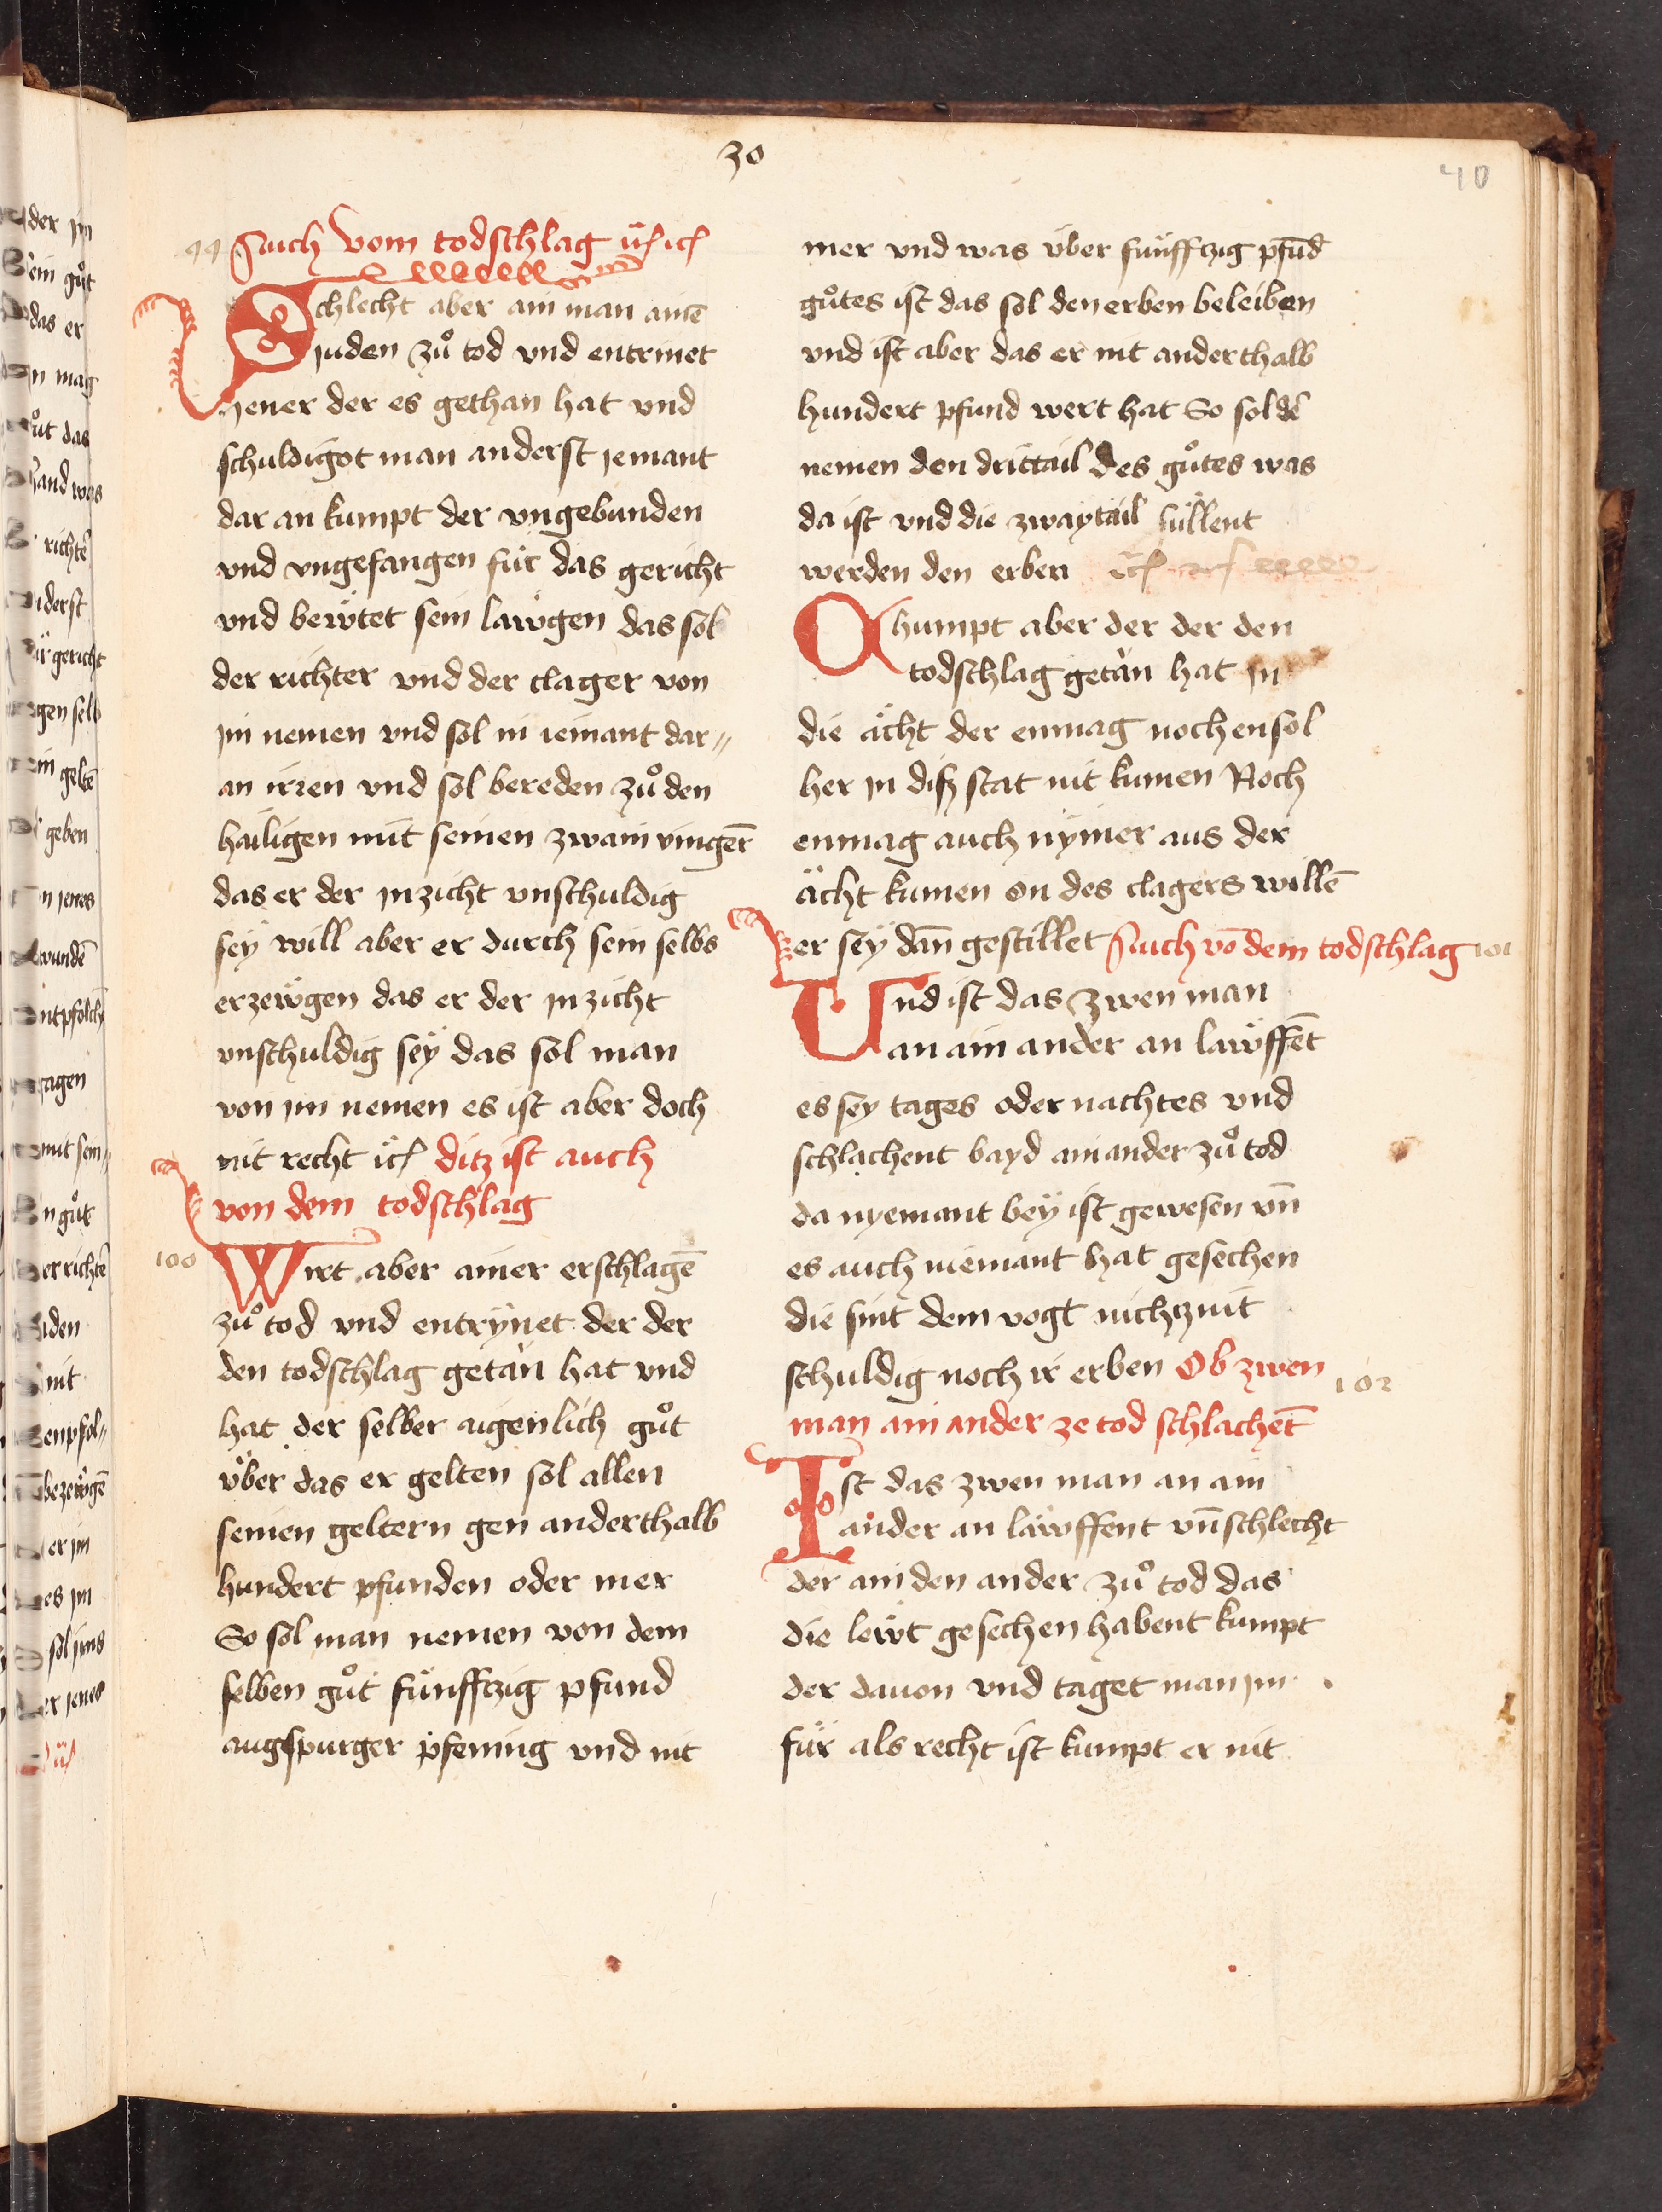 30
40
99 Auch Vom todschlag
Schlecht aber ain man ainē
juden zů tod vnd entrinet
jener der es gethan hat vnd
schuldigot man anderst jemant
dar an kumpt der vngebunden
vnd vngefangen für das gericht
vnd bewtet sein lawgen das sol
der richter vnd der clager von
im nemen vnd sol in iemant dar„
an irren vnd sol bereden zů den
hailigen mit seinen zwain vingern̄
das er der inzicht vnschuldig
seÿ will aber er durch sein selbs
erzewgen das er der inzicht
vnschuldig seÿ das sol man
von im nemen es ist aber doch
nit recht ditz ist auch
von dem todschlag
100 Wirt aber ainer erschlagē
zů tod vnd entrÿnet der der
den todschlag getàn hat vnd
hat der selber aigenlich gůt
über das er gelten sol allen
seinen geltern gen anderthalb
hundert pfunden oder mer
So sol man nemen von dem
selben gůt fünffczig pfund
augspurger pfening vnd nit
mer vnd was über fünffczig pfūd
gůtes ist das sol den erben beleiben
vnd ist aber das er nit anderthalb
hundert pfund wert hat So sol dē
nemen den drittail des gůtes was
da ist vnd die zwaytail süllent
werden den erben
Chumpt aber der der den
todschlag getàn hat in
die ächt der enmag noch ensol
her in disz stat nit kumen Noch
enmag auch nÿmer aus der
ächt kumen on des clagers willē
er seÿ dan̄ gestillet Auch vō dem todschlag 101
Vnd ist das zwen man
an ain ander an lawffēt
es sey tages oder nachtes vnd
schlachent bayd ain ander zů tod
da nyemant beÿ ist gewesen vn̄
es auch niemant hat gesechen
die sint dem vogt nichcznit
schuldig noch ir erben Ob zwen 102
man ain ander ze tod schlachēt
Ist das zwen man an ain
ander an lawffent vn̄ schlecht
der ain den ander zů tod das
die lewt gesechen habent kumpt
der dauon vnd taget man im
für als recht ist kumpt er nit